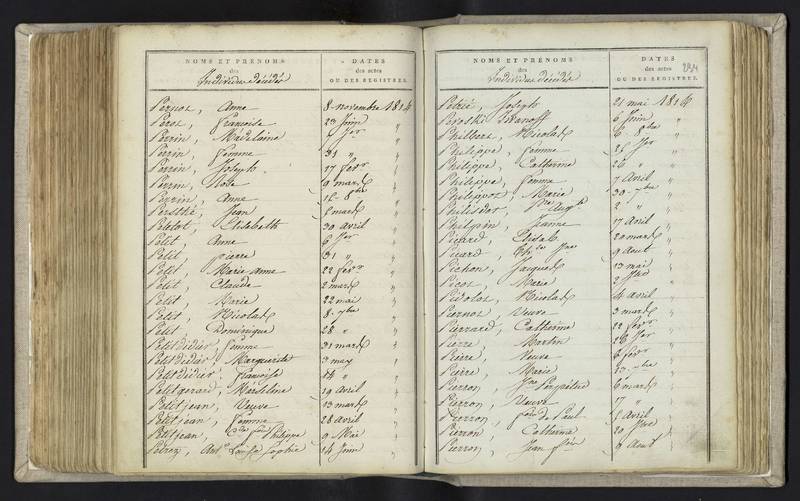 NOMS ET PRÉNOMS
des
Individus décédés
DATES
des actes
OU DES REGISTRES.
Pernot, Anne 8 novembre 1816
Perot, Françoise 23 Juin "
Perrin, Madelaine Jer "
Perrin, femme 31 " "
Perrin, Joseph 17 fevr "
Perrin, Rose 9 mards "
Perrin, Anne 12 8bre "
Jean mards "
Petelot, Elisabeth 30 avril "
Petit, Anne 6 Jer "
Petit, pierre 31 " "
Petit, Marie Anne 22 fevr "
Petit, Claude 2 mards "
Petit, Marie 22 mai "
Petit, Nicolas 8 7bre "
Petit Dominique 28 " "
Petitdidier, femme 31 mards "
Petitdidier, Marguerite 3 may "
Petitdidier, françoise 14 " "
Petitgerard, Madeleine 19 avril "
Petitjean, Veuve 13 mards "
Petitjean, femme 28 avril "
Petitjean, Philippe 9 Mai "
Petrez, Ant Louise Sophie 14 Juin "
NOMS ET PRÉNOMS
des
Individus décédés
DATES
des actes
OU DES REGISTRES.
234
Petrié, Joseph 21 mai 1816
6 Juin "
Philbert, Nicolas 6 8bre "
Philippe, femme 25 Jer "
Philippe, Catherine 26 " "
Philippe, femme 7 Avril "
Philippot, Marie 30 7bre "
Philisdor, Augte 2 " "
Phelpin, Jeanne 17 Avril "
Picard, Elisab. 20 mards "
Picard, 9 Aout "
Pichon, Jacques 13 mai "
Picot, Marie 2 "
Pidolot, Nicolas 4 avril "
Piernot, Veuve 3 mards "
Pierrard, Catherine 22 fevr "
Pierre, Martin 28 Jer "
Pierre, Veuve 6 fevr "
Pierre, Marie 13 7bre "
Pierron, 6 mards "
Pierron, Veuve 17 " "
Pierron, de Paul 1 Avril "
Pierron, Catherine 20 "
Pierron, Jean 9 Aout "